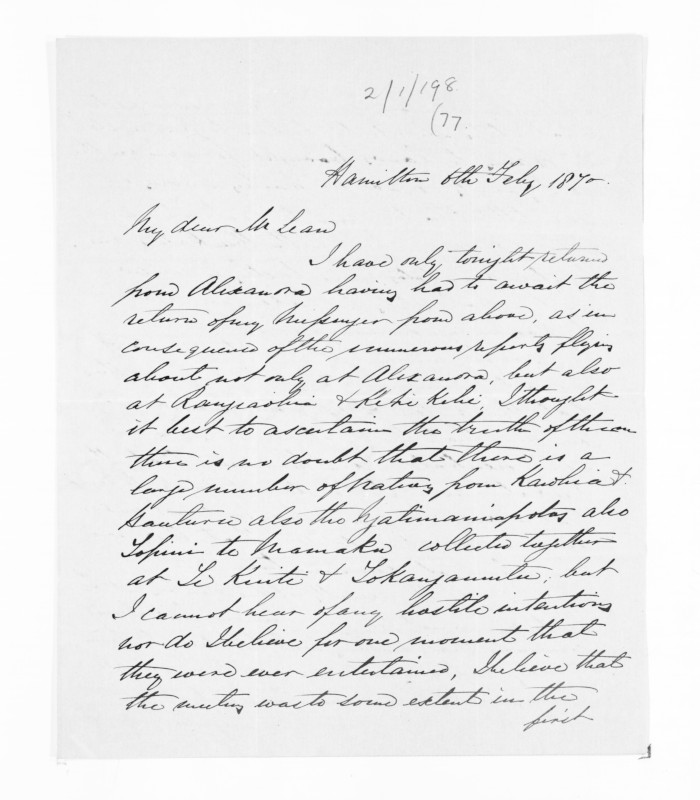 2/1/198
(77.
Hamilton 6th Feby 1870.
My dear McLean
I have only tonight returned
from Alexandra having had to await the
return of my Messenger from above, as in
consequence of the numerous reports flying
about not only at Alexandra, but also
at Rangiaohia & Keki Keki I thought
it best to ascertain the truth of them
there is no doubt that there is a
large number of Natives from Kawhia &
Hauturu also the Ngatimaniapotos also
Topini te Mamaku collected together
at Te Kuiti & Tokangamutu; but
I cannot hear of any hostile intentions
nor do I believe for one moment that
they were ever entertained, I believe that
the meeting was to some extent in the
first